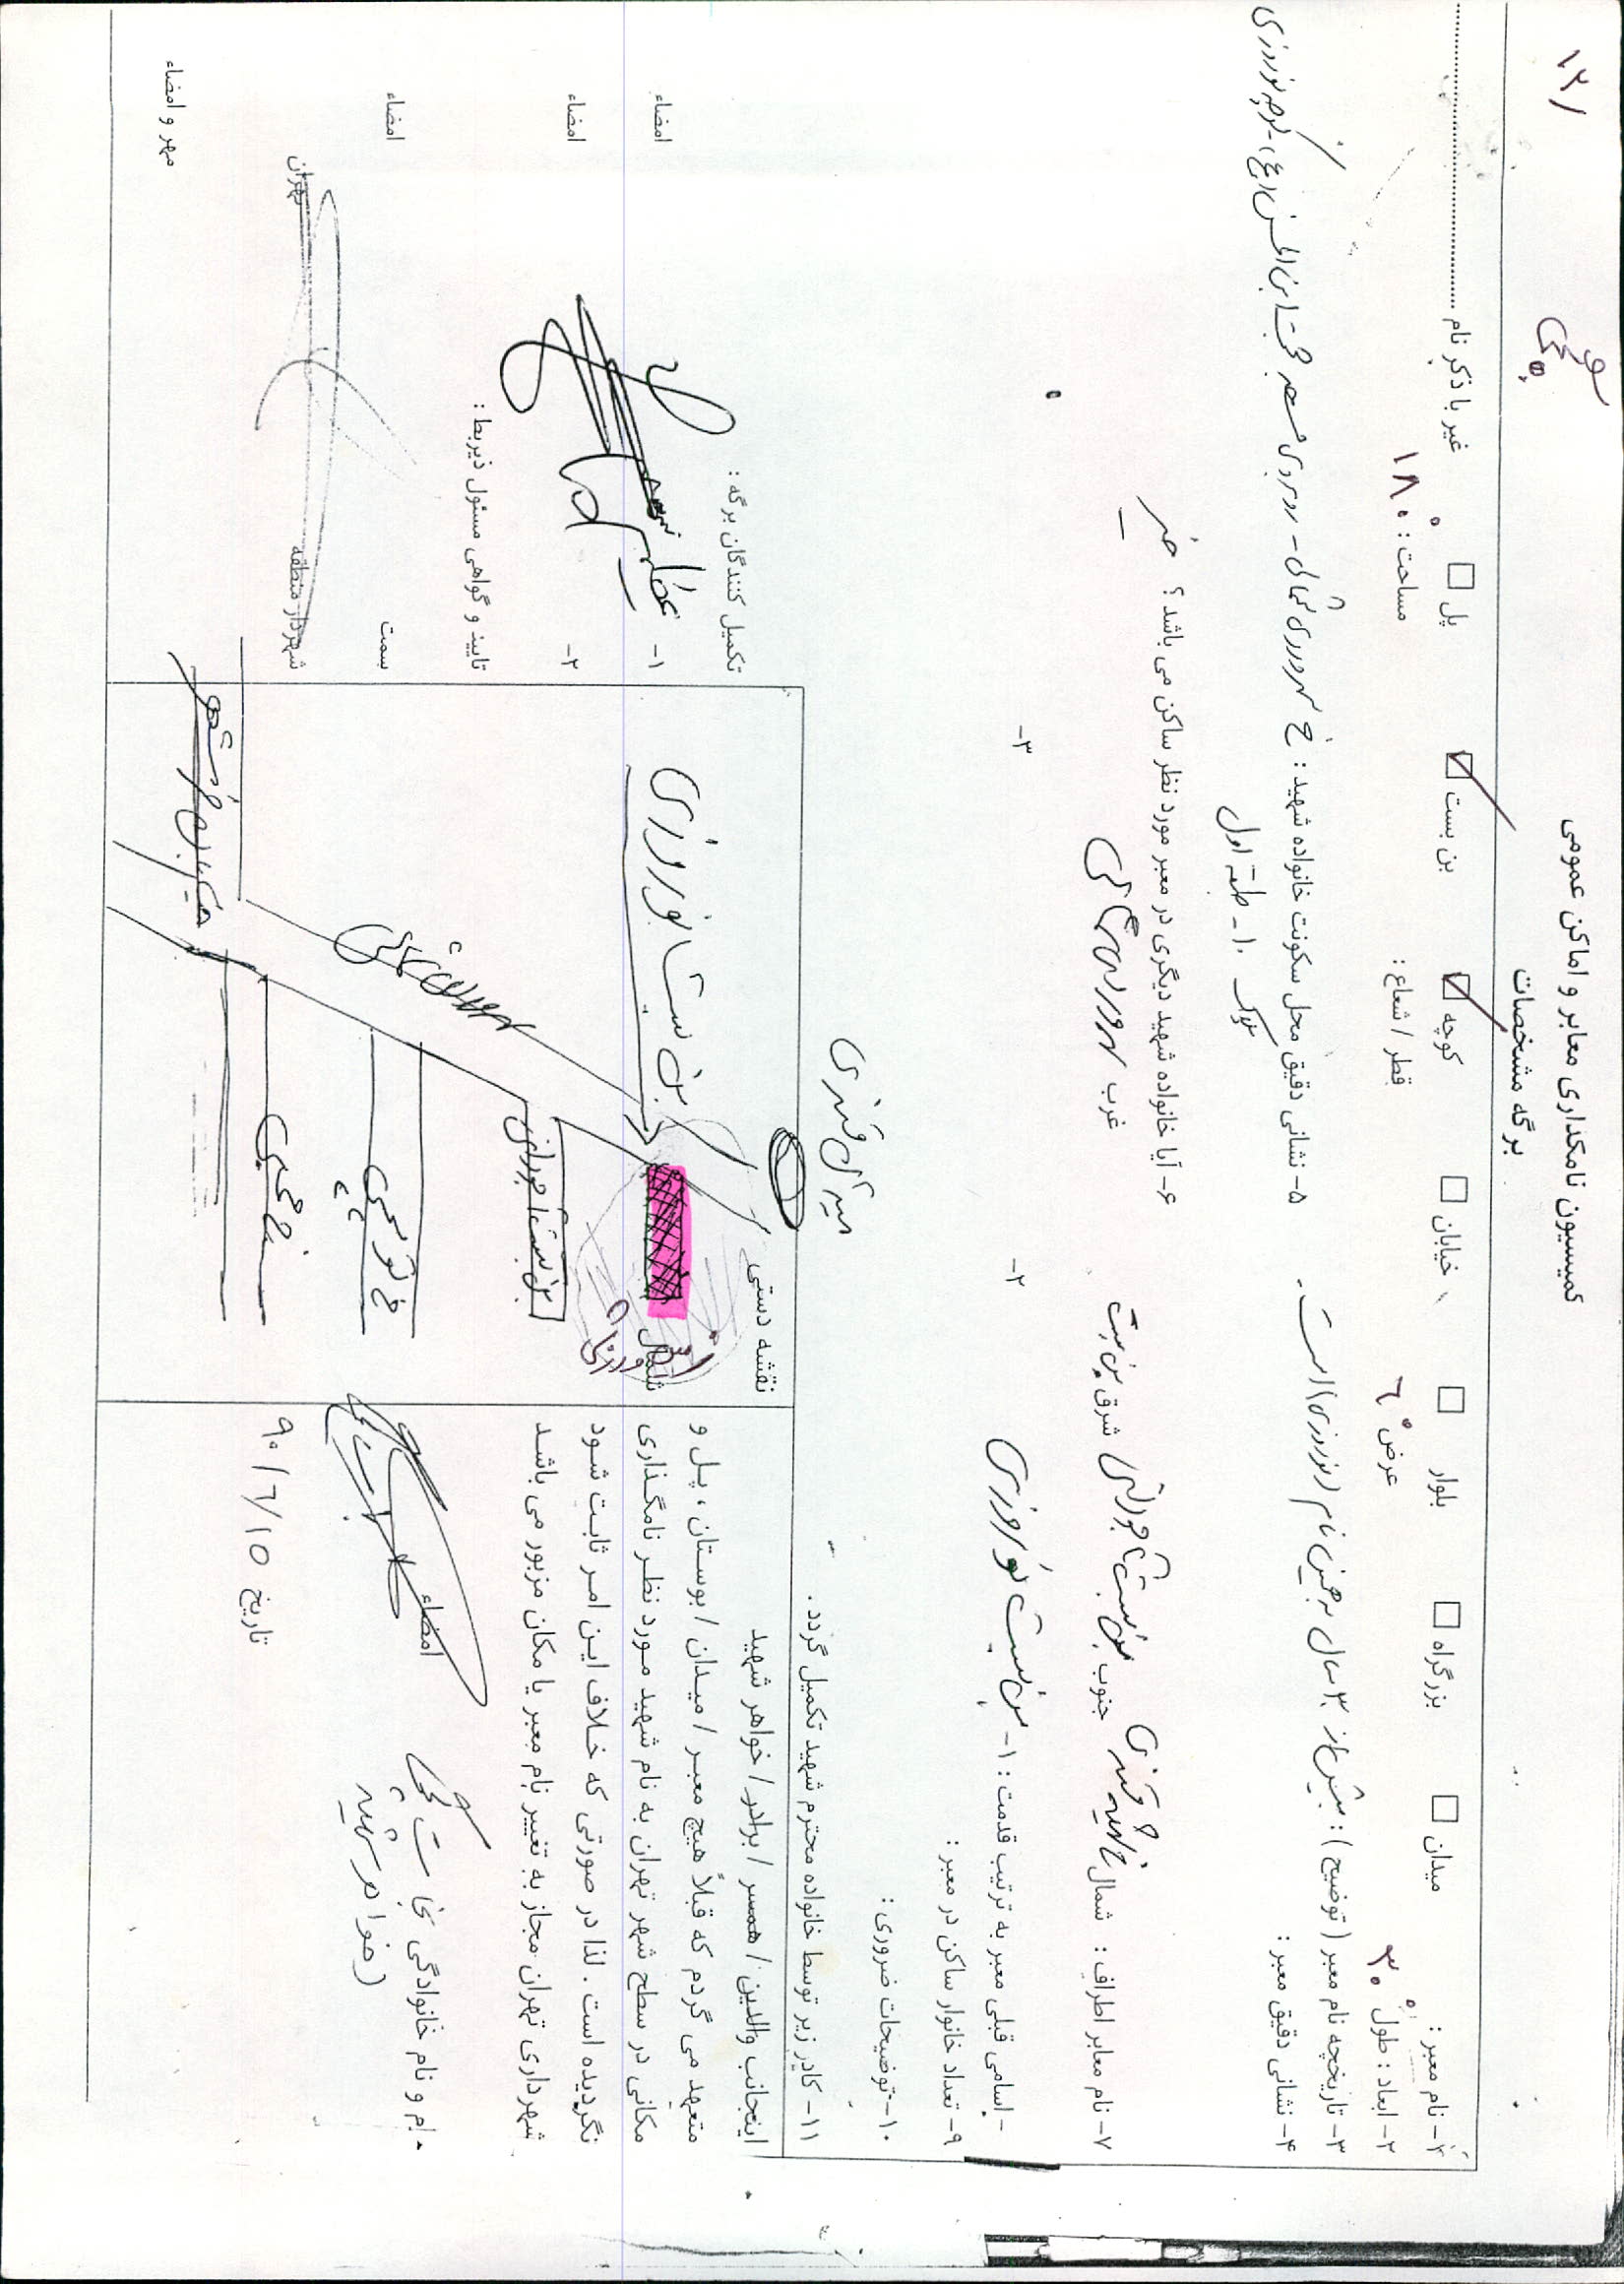 ۱۲/
کمیسیون نامگذاری معابر و اماکن عمومی
برگه مشخصات
۱- نام معبر : میدان بزرگراه بلوار خیابان کوچه بن بست پل غیر با ذکر نام
۲- ابعاد : طول ۳۰ عرض ۶ قطر / شعاع : مساحت : ۱۸۰
۳- تاریخچه نام معبر ( توضیح ) : بیش از ۳۰ سال به همین نام (نوروزی) است .
۴- نشانی دقیق معبر :
۵- نشانی دقیق محل سکونت خانواده شهید : خ سهروردی شمالی - روبروی مسجد حجت ابن الحسن (عج) - کوچه نوروزی
پلاک ۱۰ - طبقه اول
۶- آیا خانواده شهید دیگری در معبر مورد نظر ساکن می باشد ؟ خیر
۷- نام معابر اطراف : شمال خ شهید قندی جنوب بن بست شرق بن بست غرب سهروردی شمالی
- اسامی قبلی معبر به ترتیب قدمت : ۱- بن بست نوروزی ۲- ۳-
۹- تعداد خانوار ساکن در معبر :
۱۰- توضیحات ضروری :
۱۱- کادر زیر توسط خانواده محترم شهید تکمیل گردد .
اینجانب والدین / همسر / برادر / خواهر شهید
متعهد می گردم که قبلاً هیچ معبر / میدان / بوستان ، پل و
مکانی در سطح شهر تهران به نام شهید مورد نظر نامگذاری
نگردیده است . لذا در صورتی که خلاف این امر ثابت شود
شهرداری تهران مجاز به تغییر نام معبر یا مکان مزبور می باشد
نام و نام خانوادگی
(خواهر شهید)
امضاء
تاریخ ۹۰/۶/۱۵
نقشه دستی
شمال
میدان قندی
بن بست نوروزی
بن بست
سهروردی شمالی
تکمیل کنندگان برگه :
۱- امضاء
۲- امضاء
تایید و گواهی مسئول ذیربط :
سمت امضاء
شهردار منطقه تهران
مهر و امضاء